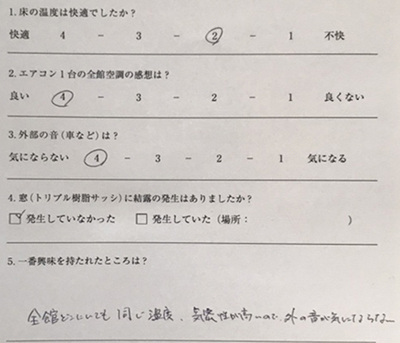 1. 床の温度は快適でしたか?
快適 4 - 3 - 2 - 1 不快
2. エアコン1台の全館空調の感想は?
良い 4 - 3 - 2 - 1 良くない
3. 外部の音(車など)は?
気にならない 4 - 3 - 2 - 1 気になる
4. 窓(トリプル樹脂サッシ)に結露の発生はありましたか?
☑発生していなかった □発生していた(場所: )
5. 一番興味を持たれたところは?
全館どこにいても同じ温度、気密性が高いので、外の音が気にならない